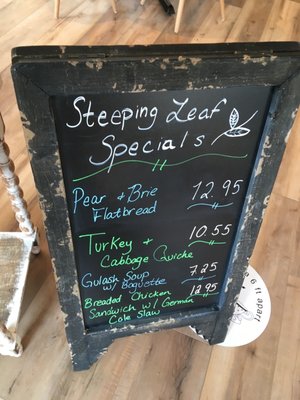 Steeping Leaf
Specials
Pear & Brie 12.95
Flatbread
Turkey & 10.55
Cabbage Quiche
Gulash Soup 7.25
w/ Baguette
Breaded Chicken 12.95
Sandwich w/ German
Cole Slaw